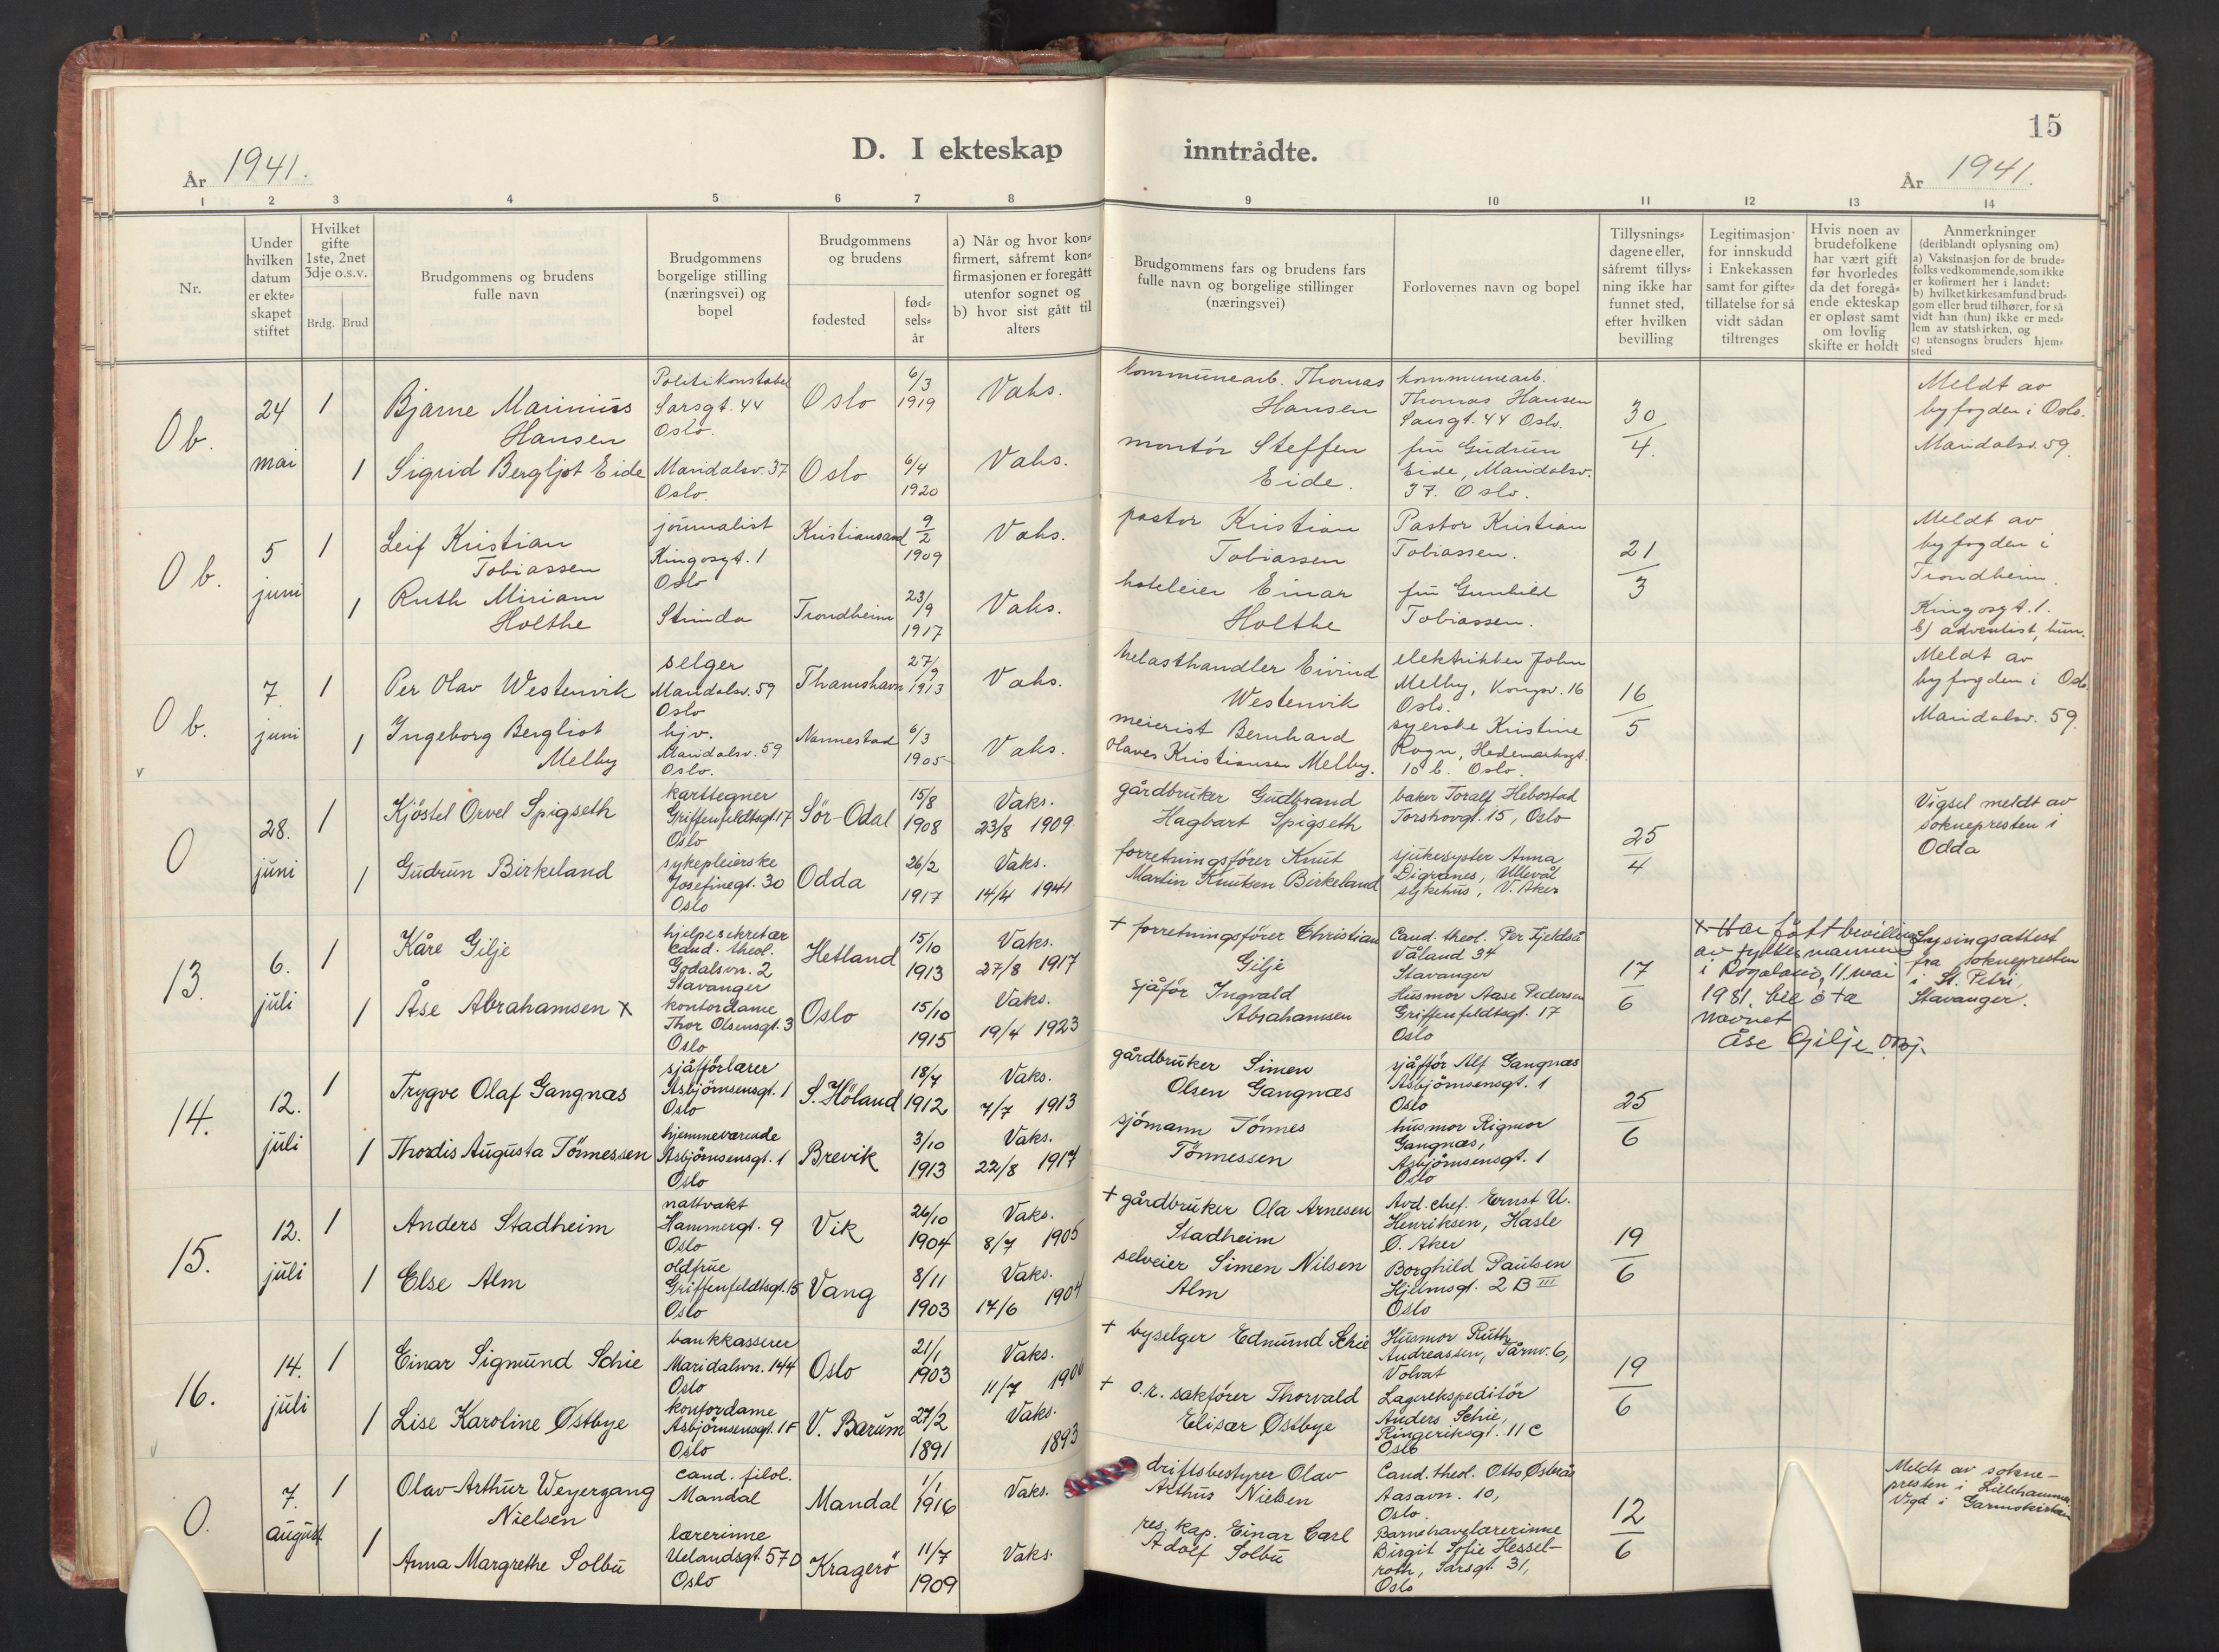 15
D. I ekteskap inntrådte.
År 1941.
År 1941.
1 2 3 4 5 6 7 8 9 10 11 12 13 14
Nr.
Under
hvilken
datum
er ekte-
skapet
stiftet
Hvilket
gifte
1ste, 2net
3dje o.s.v.
Brdg. Brud
Brudgommens og brudens
fulle navn
Brudgommens
borgelige stilling
(næringsvei) og
bopel
Brudgommens
og brudens
fødested
fød-
sels-
år
a) Når og hvor kon-
firmert, såfremt kon-
firmasjonen er foregått
utenfor sognet og
b) hvor sist gått til
alters
Brudgommens fars og brudens fars
fulle navn og borgelige stillinger
(næringsvei)
Forlovernes navn og bopel
Tillysnings-
dagene eller,
såfremt tillys-
ning ikke har
funnet sted,
efter hvilken
bevilling
Legitimasjon
for innskudd
i Enkekassen
samt for gifte-
tillatelse for så
vidt sådan
tiltrenges
Hvis noen av
brudefolkene
har vært gift
før hvorledes
da det foregå-
ende ekteskap
er opløst samt
om lovlig
skifte er holdt
Anmerkninger
(deriblandt oplysning om)
a) Vaksinasjon for de brude-
folks vedkommende, som ikke
er kofirmert her i landet:
b) hvilket kirkesamfund brud-
gom eller brud tilhører, for så
vidt han (hun) ikke er med-
lem av statskirken, og
c) utensogns bruders hjem-
sted
0 b.
24
mai
1
Bjarne Marinius
Hansen
Politikonstabel
Sarsgt. 44
Oslo.
Oslo
6/3
1919
Vaks.
kommunearb. Thomas
Hansen
kommunearb.
Thomas Hansen
Sarsgt. 44 Oslo.
30
4.
Meldt av
byfogden i Oslo.
Maridalsv. 59.
1
Sigrid Bergljot Eide
Maridalsv. 37
Oslo.
Oslo
6/4
1920
Vaks.
montör Steffen
Eide.
fru Gudrun
Eide, Maridalsv.
37. Oslo.
0 b.
5
juni
1
Leif Kristian
Tobiassen
journalist
Kingosgt. 1
Oslo
Kristiansand
9
2
1909
Vaks.
pastor Kristian
Tobiassen
Pastor Kristian
Tobiassen.
21
3
Meldt av
byfogden i
Trondheim.
Kingosgt. 1.
b) adventist, hun.
1
Ruth Miriam
Holthe
Strinda
Trondheim
23/
9
1917
Vaks.
hoteleier Einar
Holthe
fru Gunhild
Tobiassen.
0 b.
7.
juni
1
Per Olav Westenvik
selger
Maridalsv. 59
Oslo
Thamshavn
27/
9
1913
Vaks.
trelasthandler Eivind
Westenvik
elektriker John
Melby, Kongsv. 16
Oslo.
16
5
Meldt av
byfogden i Oslo.
Maridalsv. 59.
1
Ingeborg Bergliot
Melby
hjv.
Maridalsv. 59
Oslo.
Nannestad
6/3
1905
Vaks.
meierist Bernhard
Olaves Kristiansen Melby.
syerske Kristine
Rogn, Hedemarksgt.
10 b. Oslo.
v
0
28.
juni
1
Kjöstel Orvel Spigseth
karttegner
Griffenfeldtsgt. 17
Oslo
Sör-Odal
15/8
1908
Vaks.
23/8 1909
gårdbruker Gudbrand
Hagbart Spigseth
baker Toralf Hebostad
Torshovgt. 15, Oslo
25
4
Vigsel meldt av
soknepresten i
Odda
1
Gudrun Birkeland
sykepleierske
Josefinegt. 30
Oslo
Odda
26/2
1917
Vaks.
14/4 1941
forretningsförer Knut
Martin Knutsen Birkeland
sjukesyster Anna
Digranes, Ullevål
sykehus, V. Aker
13.
6.
juli
1
Kåre Gilje
hjelpesekretær
cand. theol.
Godalsvn. 2
Stavanger
Hetland
15/10
1913
Vaks.
27/8 1917
+ forretningsförer Christian
Gilje
Cand. theol. Per Fjeldså
Våland 34
Stavanger
17
6
x Har fått bevilling
av fylkesmannen
i Rogaland, 11 mai
1981, til å ta
navnet
Åse Gilje
Lysingsattest
fra soknepresten
i St. Petri,
Stavanger.
1
Åse Abrahamsen x
kontordame
Thor Olsensgt. 3
Oslo
Oslo
15/10
1915
Vaks.
19/4 1923
sjåför Ingvald
Abrahamsen
Husmor Aase Pedersen
Griffenfeldtsgt. 17
Oslo
14.
12.
juli
1
Trygve Olaf Gangnæs
sjåförlærer
Asbjörnsensgt. 1
Oslo
S. Höland
18/7
1912
Vaks.
7/7 1913
gårdbruker Simen
Olsen Gangnæs
sjåför Alf Gangnæs
Asbjörnsensgt. 1
Oslo
25
6
1
Thordis Augusta Tönnessen
hjemmeværende
Asbjörnsensgt. 1
Oslo
Brevik
3/10
1913
Vaks.
22/8 1917
sjömann Tönnes
Tönnessen
husmor Rigmor
Gangnæs,
Asbjörnsensgt. 1
Oslo
15.
12.
juli
1
Anders Stadheim
nattvakt
Hammergt. 9
Oslo
Vik
26/10
1904
Vaks.
8/7 1905
+ gårdbruker Ola Arnesen
Stadheim
Avd. chef. Ernst U.
Henriksen, Hasle
Ø. Aker
19
6
1
Else Alm
oldfrue
Griffenfeldtsgt. 15
Oslo
Vang
8/11
1903
Vaks.
17/6 1904
selveier Simen Nilsen
Alm
Borghild Paulsen
Hjelmsgt. 2 B III
Oslo
16.
14.
juli
1
Einar Sigmund Schie
bankkasserer
Maridalsvn. 144
Oslo
Oslo
21/1
1903
Vaks.
11/7 1906
+ byselger Edmund Schie
Husmor Ruth
Andreassen, Tårnv. 6,
Volvat
19
6
1
Lise Karoline Østbye
kontordame
Asbjörnsensgt. 1F
Oslo
V. Bærum
27/2
1891
Vaks.
1893
+ o.r. sakförer Thorvald
Elisær Østbye
Lagerekspeditör
Anders Schie,
Ringeriksgt. 11 C
Oslo
v
0.
7.
august
1
Olav-Arthur Weyergang
Nielsen
cand. filol.
Mandal
Mandal
1/1
1916
Vaks.
driftsbestyrer Olav
Arthur Nielsen
Cand. theol. Otto Østerås
Aasavn. 10,
Oslo.
12
6
Meldt av sokne-
presten i Lillehammer.
Vigd i Garmokirken
1
Anna Margrethe Solbu
lærerinne
Uelandsgt. 57 D
Oslo
Kragerö
11/7
1909
Vaks.
res. kap. Einar Carl
Adolf Solbu
Barnehavelærerinne
Birgit Sofie Hessel-
roth, Sarsgt. 31,
Oslo